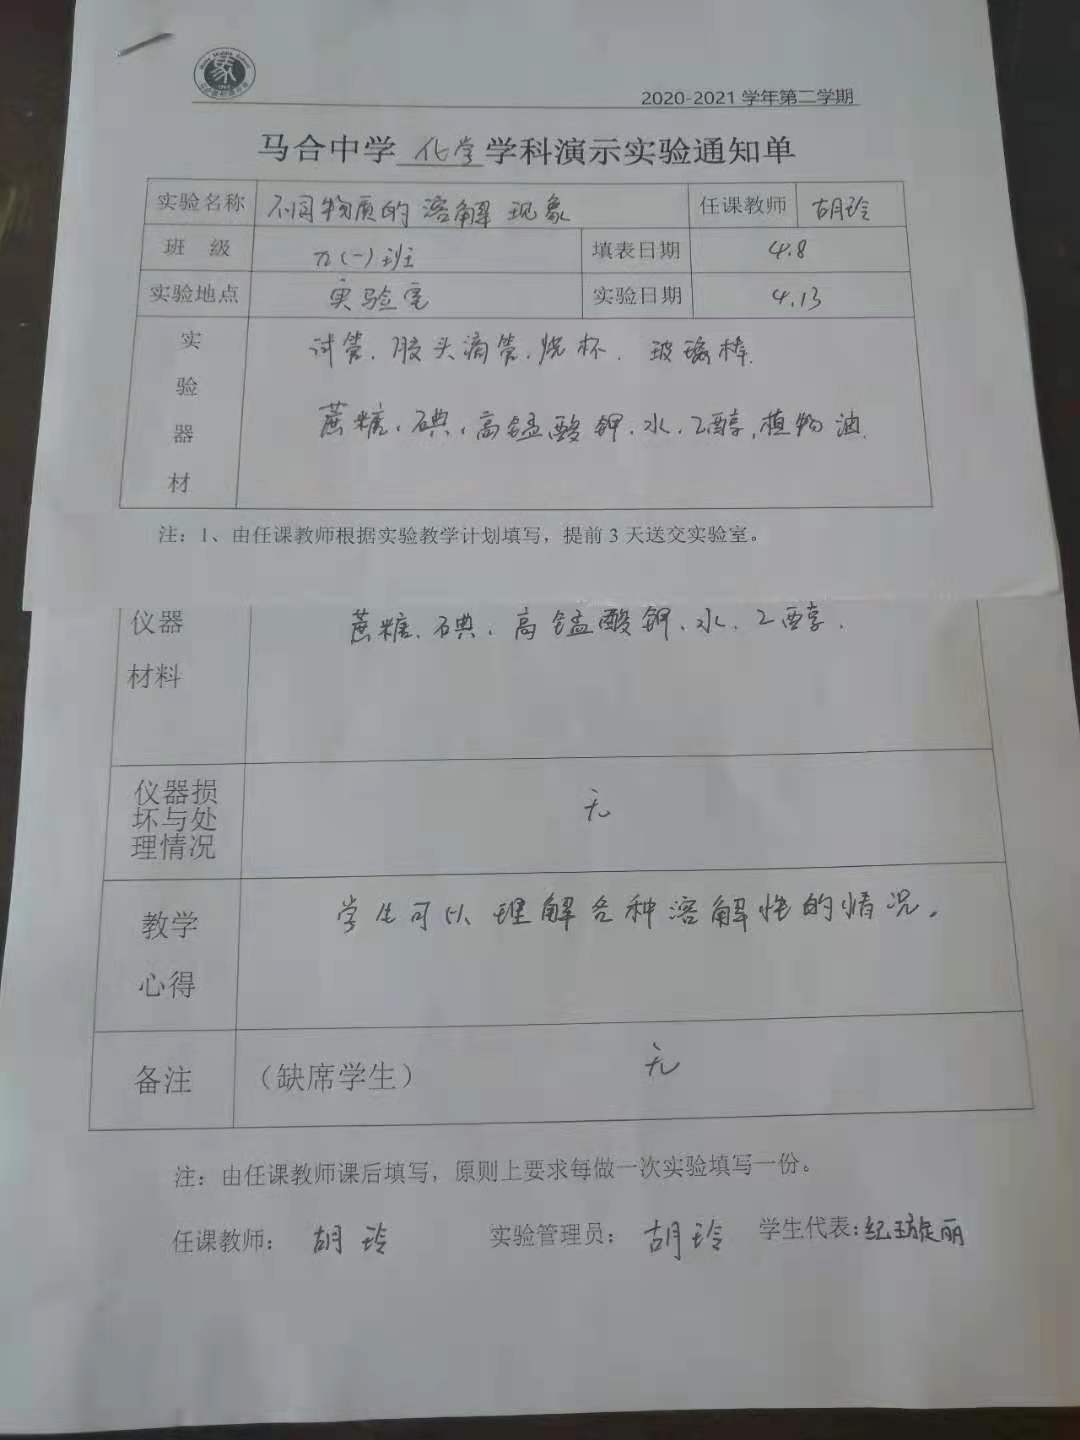 2020-2021 学年第二学期
马合中学 化学 学科演示实验通知单
实验名称 不同物质的溶解现象 任课教师 胡玲
班 级 九(一)班 填表日期 4.8
实验地点 实验室 实验日期 4.13
实验器材 试管、胶头滴管、烧杯、玻璃棒.
蔗糖、碘、高锰酸钾、水、乙醇,植物油.
注：1、由任课教师根据实验教学计划填写，提前 3 天送交实验室。
仪器 蔗糖、碘、高锰酸钾、水、乙醇.
材料
仪器损
坏与处 无
理情况
教学 学生可以理解各种溶解性的情况。
心得
备注 （缺席学生） 无
注：由任课教师课后填写，原则上要求每做一次实验填写一份。
任课教师： 胡玲 实验管理员： 胡玲 学生代表:纪璇丽